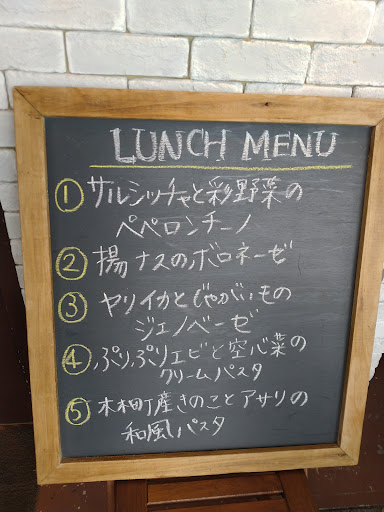 LUNCH MENU
① サルシッチャと彩野菜の
ペペロンチーノ
② 揚ナスのボロネーゼ
③ ヤリイカとじゃがいもの
ジェノベーゼ
④ ぷりぷりエビと空心菜の
クリームパスタ
⑤ 木木町産きのことアサリの
和風パスタ